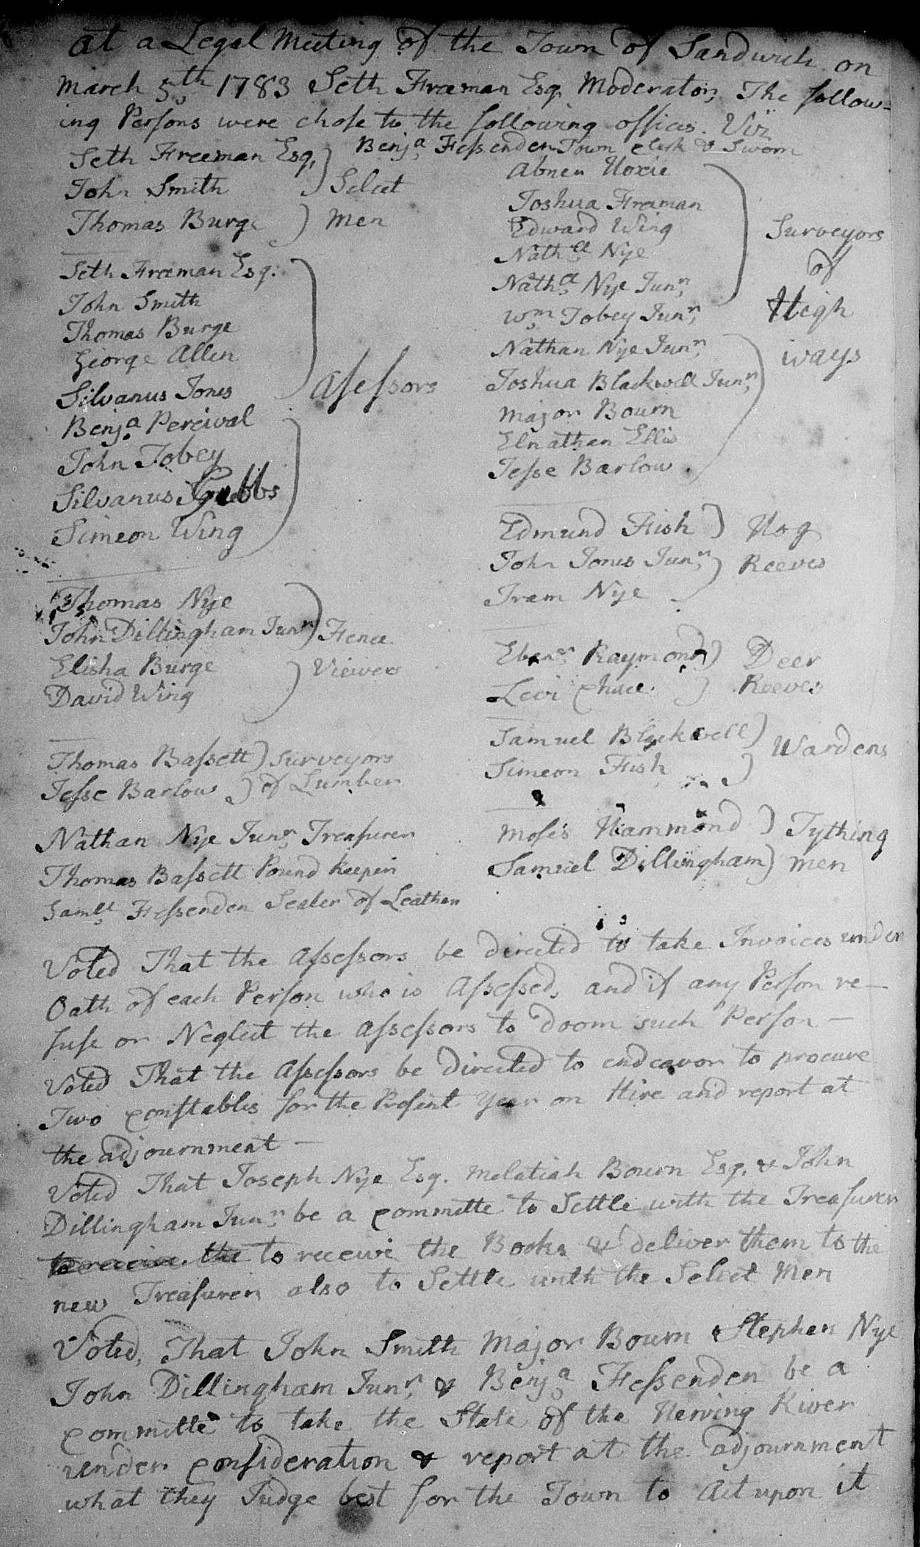 At a Legal Meeting of the Town of Sandwich on
March 5th 1783 Seth Freeman Esq. Moderator, The follow-
ing Persons were chose to the following offices. Viz
Benja. Fessenden Town Clerk & Sworn
Seth Freeman Esq.
John Smith
Thomas Burge
Select
men
Seth Freeman Esq.
John Smith
Thomas Burge
George Allen
Silvanus Jones
Benja. Percival
John Tobey
Silvanus Gibbs
Simeon Wing
Assessors
Thomas Nye
John Dillingham Junr.
Elisha Burge
David Wing
Fence
Viewers
Thomas Bassett
Jesse Barlow
Surveyors
of Lumber
Nathan Nye Junr. Treasurer
Thomas Bassett Pound Keeper
Samll. Fessenden Sealer of Leather
Abner Hoxie
Joshua Freeman
Edward Wing
Nathll. Nye
Nathll. Nye Junr.
Wm. Tobey Junr.
Nathan Nye Junr.
Joshua Blackwell Junr.
Major Bourn
Elnathan Ellis
Jesse Barlow
Surveyors
of
High
ways
Edmund Fish
John Jones Junr.
Tram Nye
Hog
Reeves
Ebenr. Raymond
Levi Chace
Deer
Reeves
Samuel Blackwell
Simeon Fish
Wardens
Moses Hammond
Samuel Dillingham
Tything
men
Voted That the Assessors be directed to take Invoices under
Oath of each Person who is Assessed, and if any Person re-
fuse or Neglect the Assessors to doom such Person —
Voted That the Assessors be directed to endeavor to procure
Two constables for the Present Year on Hire and report at
the adjournment —
Voted That Joseph Nye Esq. Melatiah Bourn Esq. & John
Dillingham Junr. be a committe to Settle with the Treasurer
to receive the to receive the Books & deliver them to the
new Treasurer also to Settle with the Select Men
Voted, That John Smith Major Bourn Stephen Nye
John Dillingham Junr. & Benja. Fessenden be a
committe to take the State of the Herring River
under consideration & report at the adjournment
what they Judge best for the Town to Act upon it